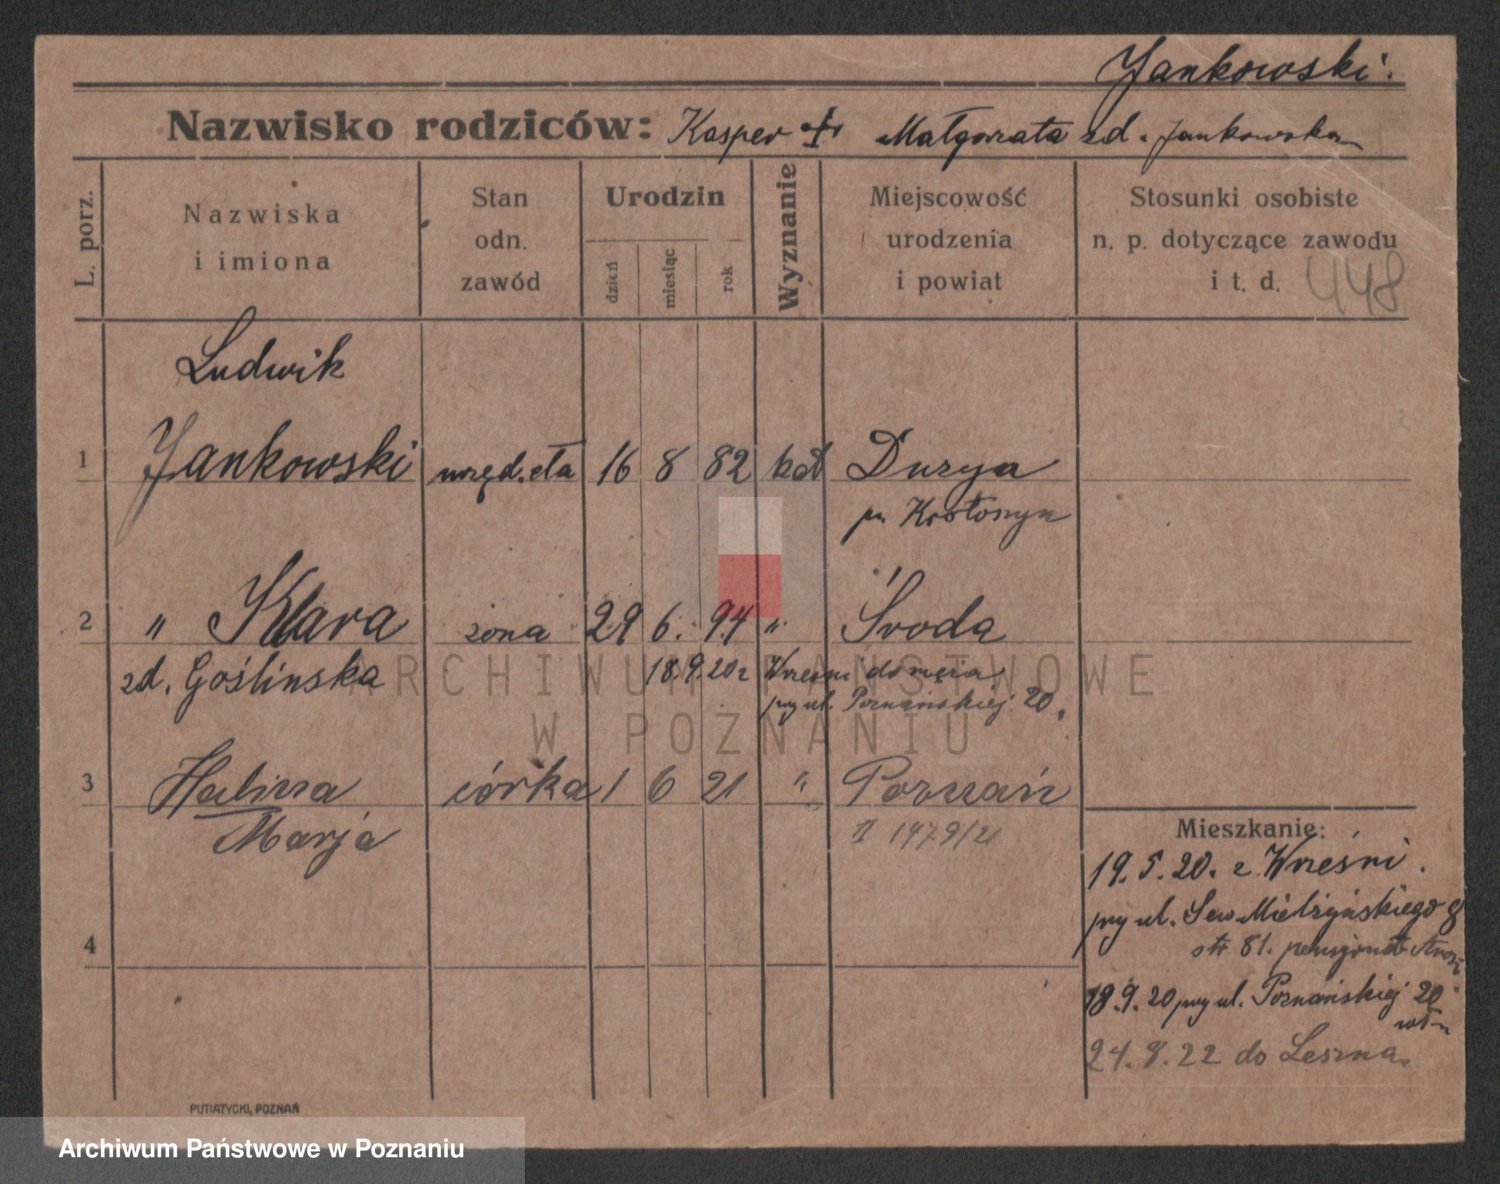 Jankowski.
Nazwisko rodziców: Kasper Małgorzata zd. Jankowska
L. porz.
Nazwiska
i imiona
Stan
odn.
zawód
Urodzin
dzień
miesiąc
rok
Wyznanie
Miejscowość
urodzenia
i powiat
Stosunki osobiste
n. p. dotyczące zawodu
i t. d.
448
Ludwik
1 Jankowski 16 8 82 kat Durzyn
pow Krotoszyn
2 " Klara żona 29 6. 94 " Środa
zd. Goślinska 18.9.20 z Wrześni do męża
przy ul. Poznańskiej 20.
3 Halina córka 1 6 21 " Poznań
Marja II 1479/21
4
Mieszkanie:
19.5.20. z Wrześni.
przy ul. Sew Mielżyńskiego 8
str 81. pensjonat
18.9.20 przy ul. Poznańskiej 20
24.8.22 do Leszna.
PUTIATYCKI, POZNAŃ
ARCHIWUM PAŃSTWOWE
W POZNANIU
Archiwum Państwowe w Poznaniu